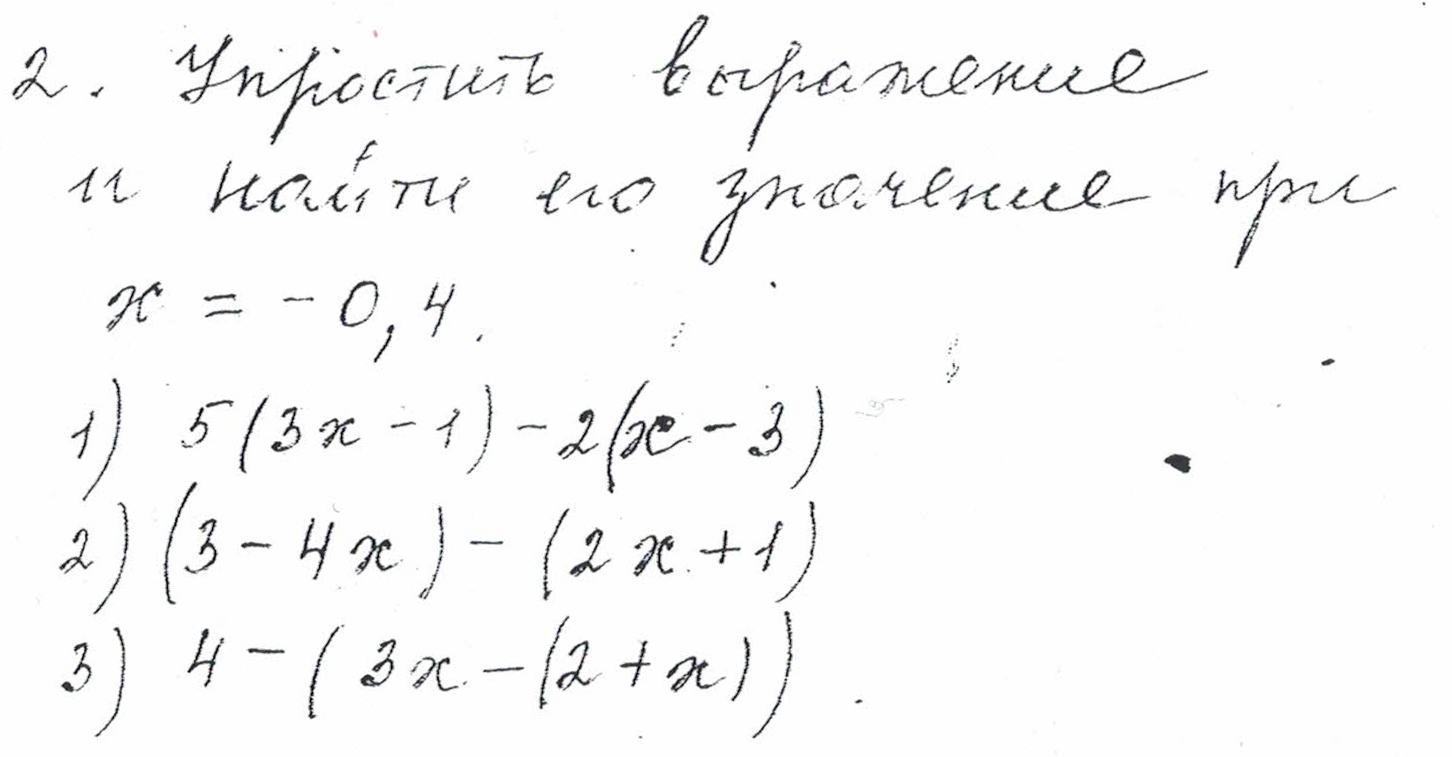 2. Упростить выражение
и найти его значение при
x = -0,4.
1) 5(3x-1)-2(x-3)
2) (3-4x)-(2x+1)
3) 4-(3x-(2+x))